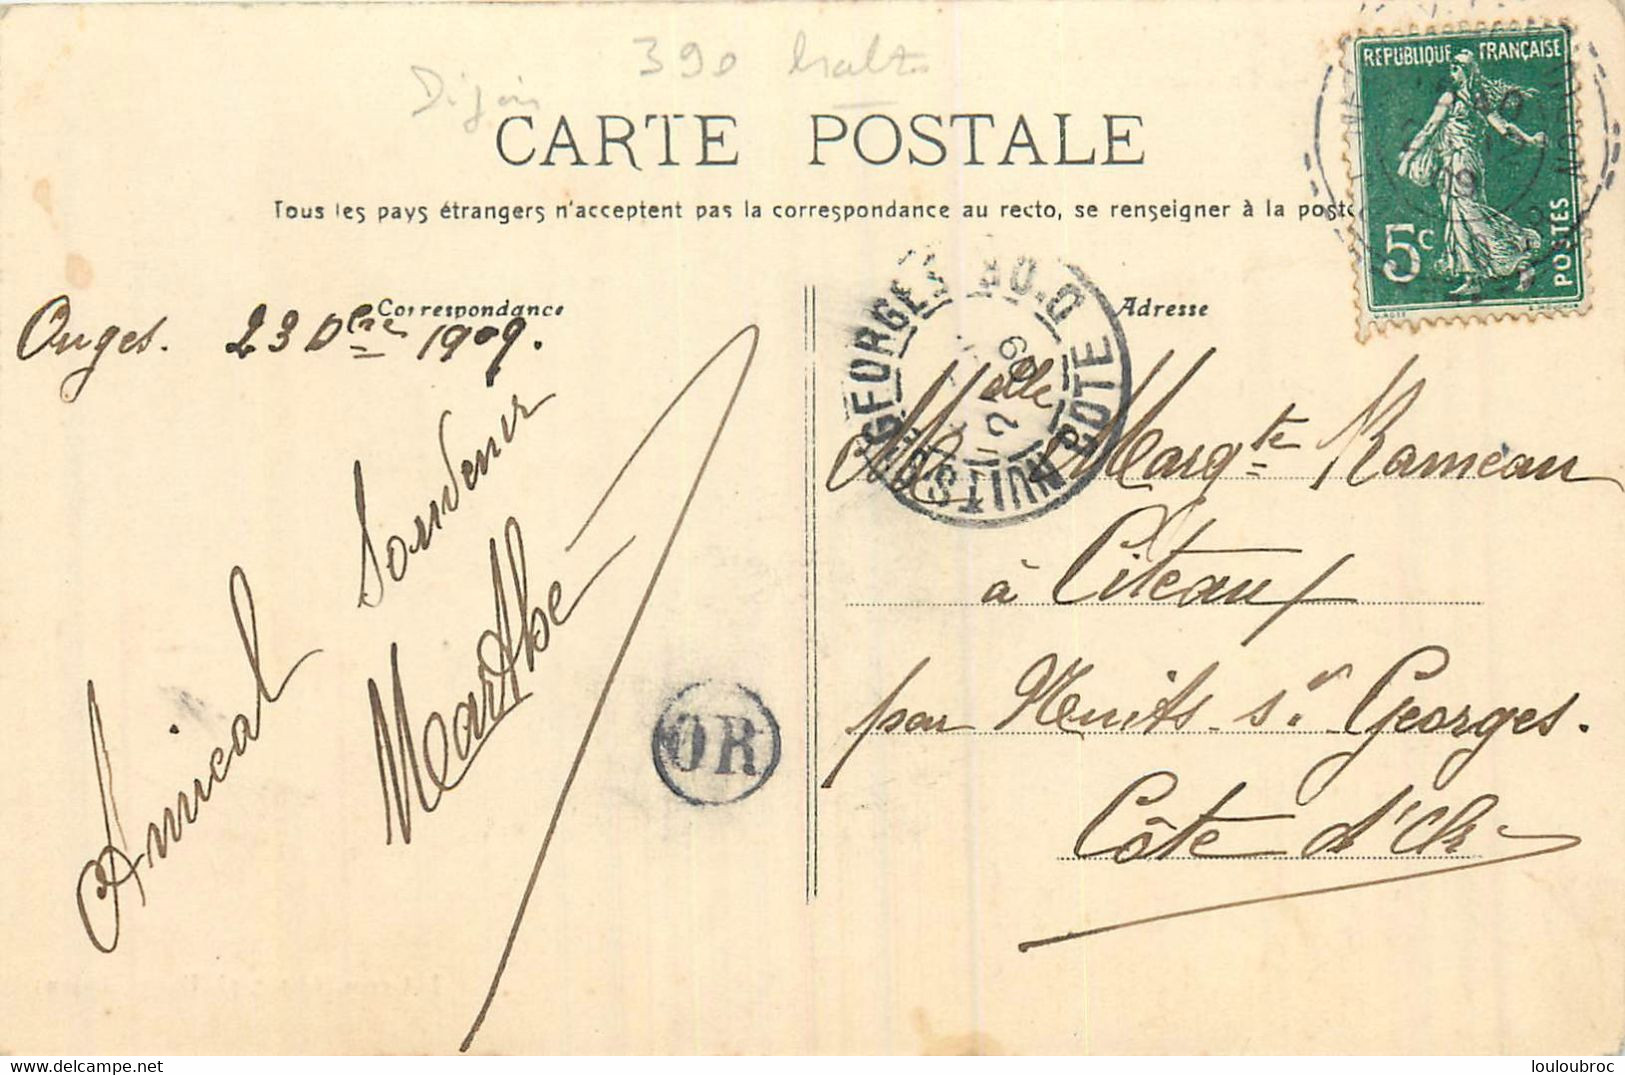 Dijon
390
CARTE POSTALE
Tous les pays étrangers n'acceptent pas la correspondance au recto, se renseigner à la poste
RÉPUBLIQUE FRANÇAISE
5c
POSTES
09
Correspondance
Adresse
Ouges. 23 Dbre 1909.
Amical Souvenir
Marthe
OR
NUITS-St GEORGES COTE D'OR
09
Melle Margte Rameau
à Citeaux
par Nuits St Georges.
Côte d'Or
delcampe.net
louloubroc